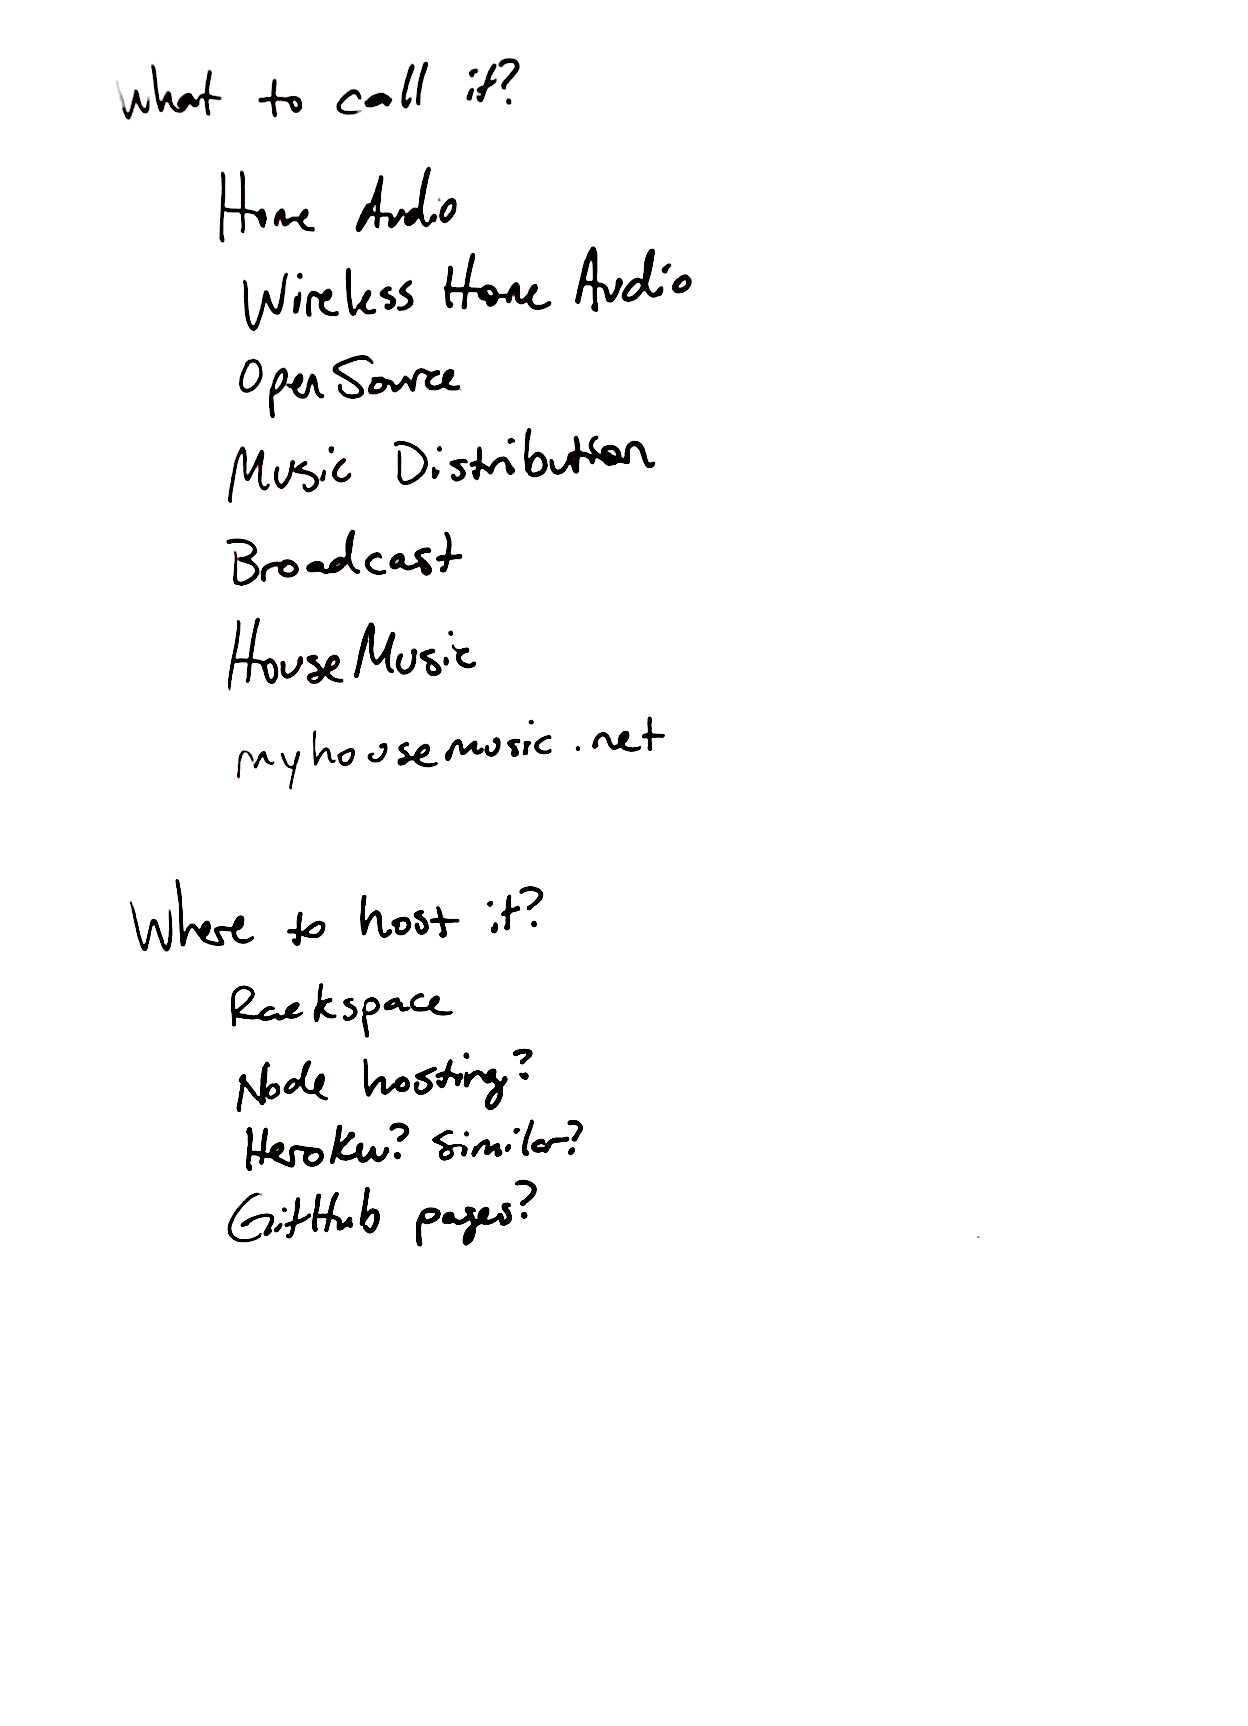 What to call it?
Home Audio
Wireless Home Audio
OpenSource
Music Distribution
Broadcast
HouseMusic
myhousemusic.net
Where to host it?
Rackspace
Node hosting?
Heroku? Similar?
GitHub pages?